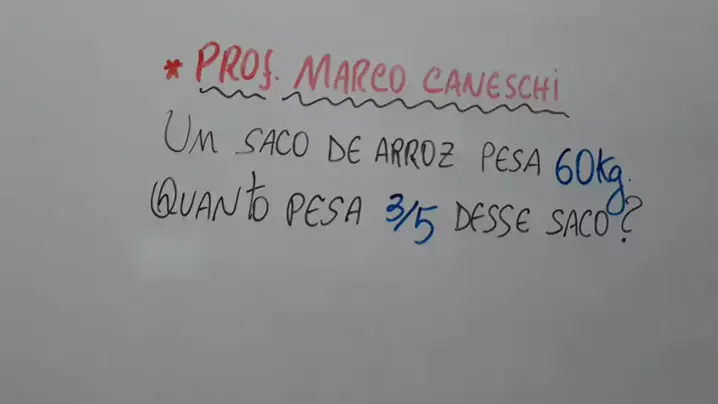 * PROf. MARCO CANESCHI
UM SACO DE ARROZ PESA 60kg.
QUANTO PESA 3/5 DESSE SACO?